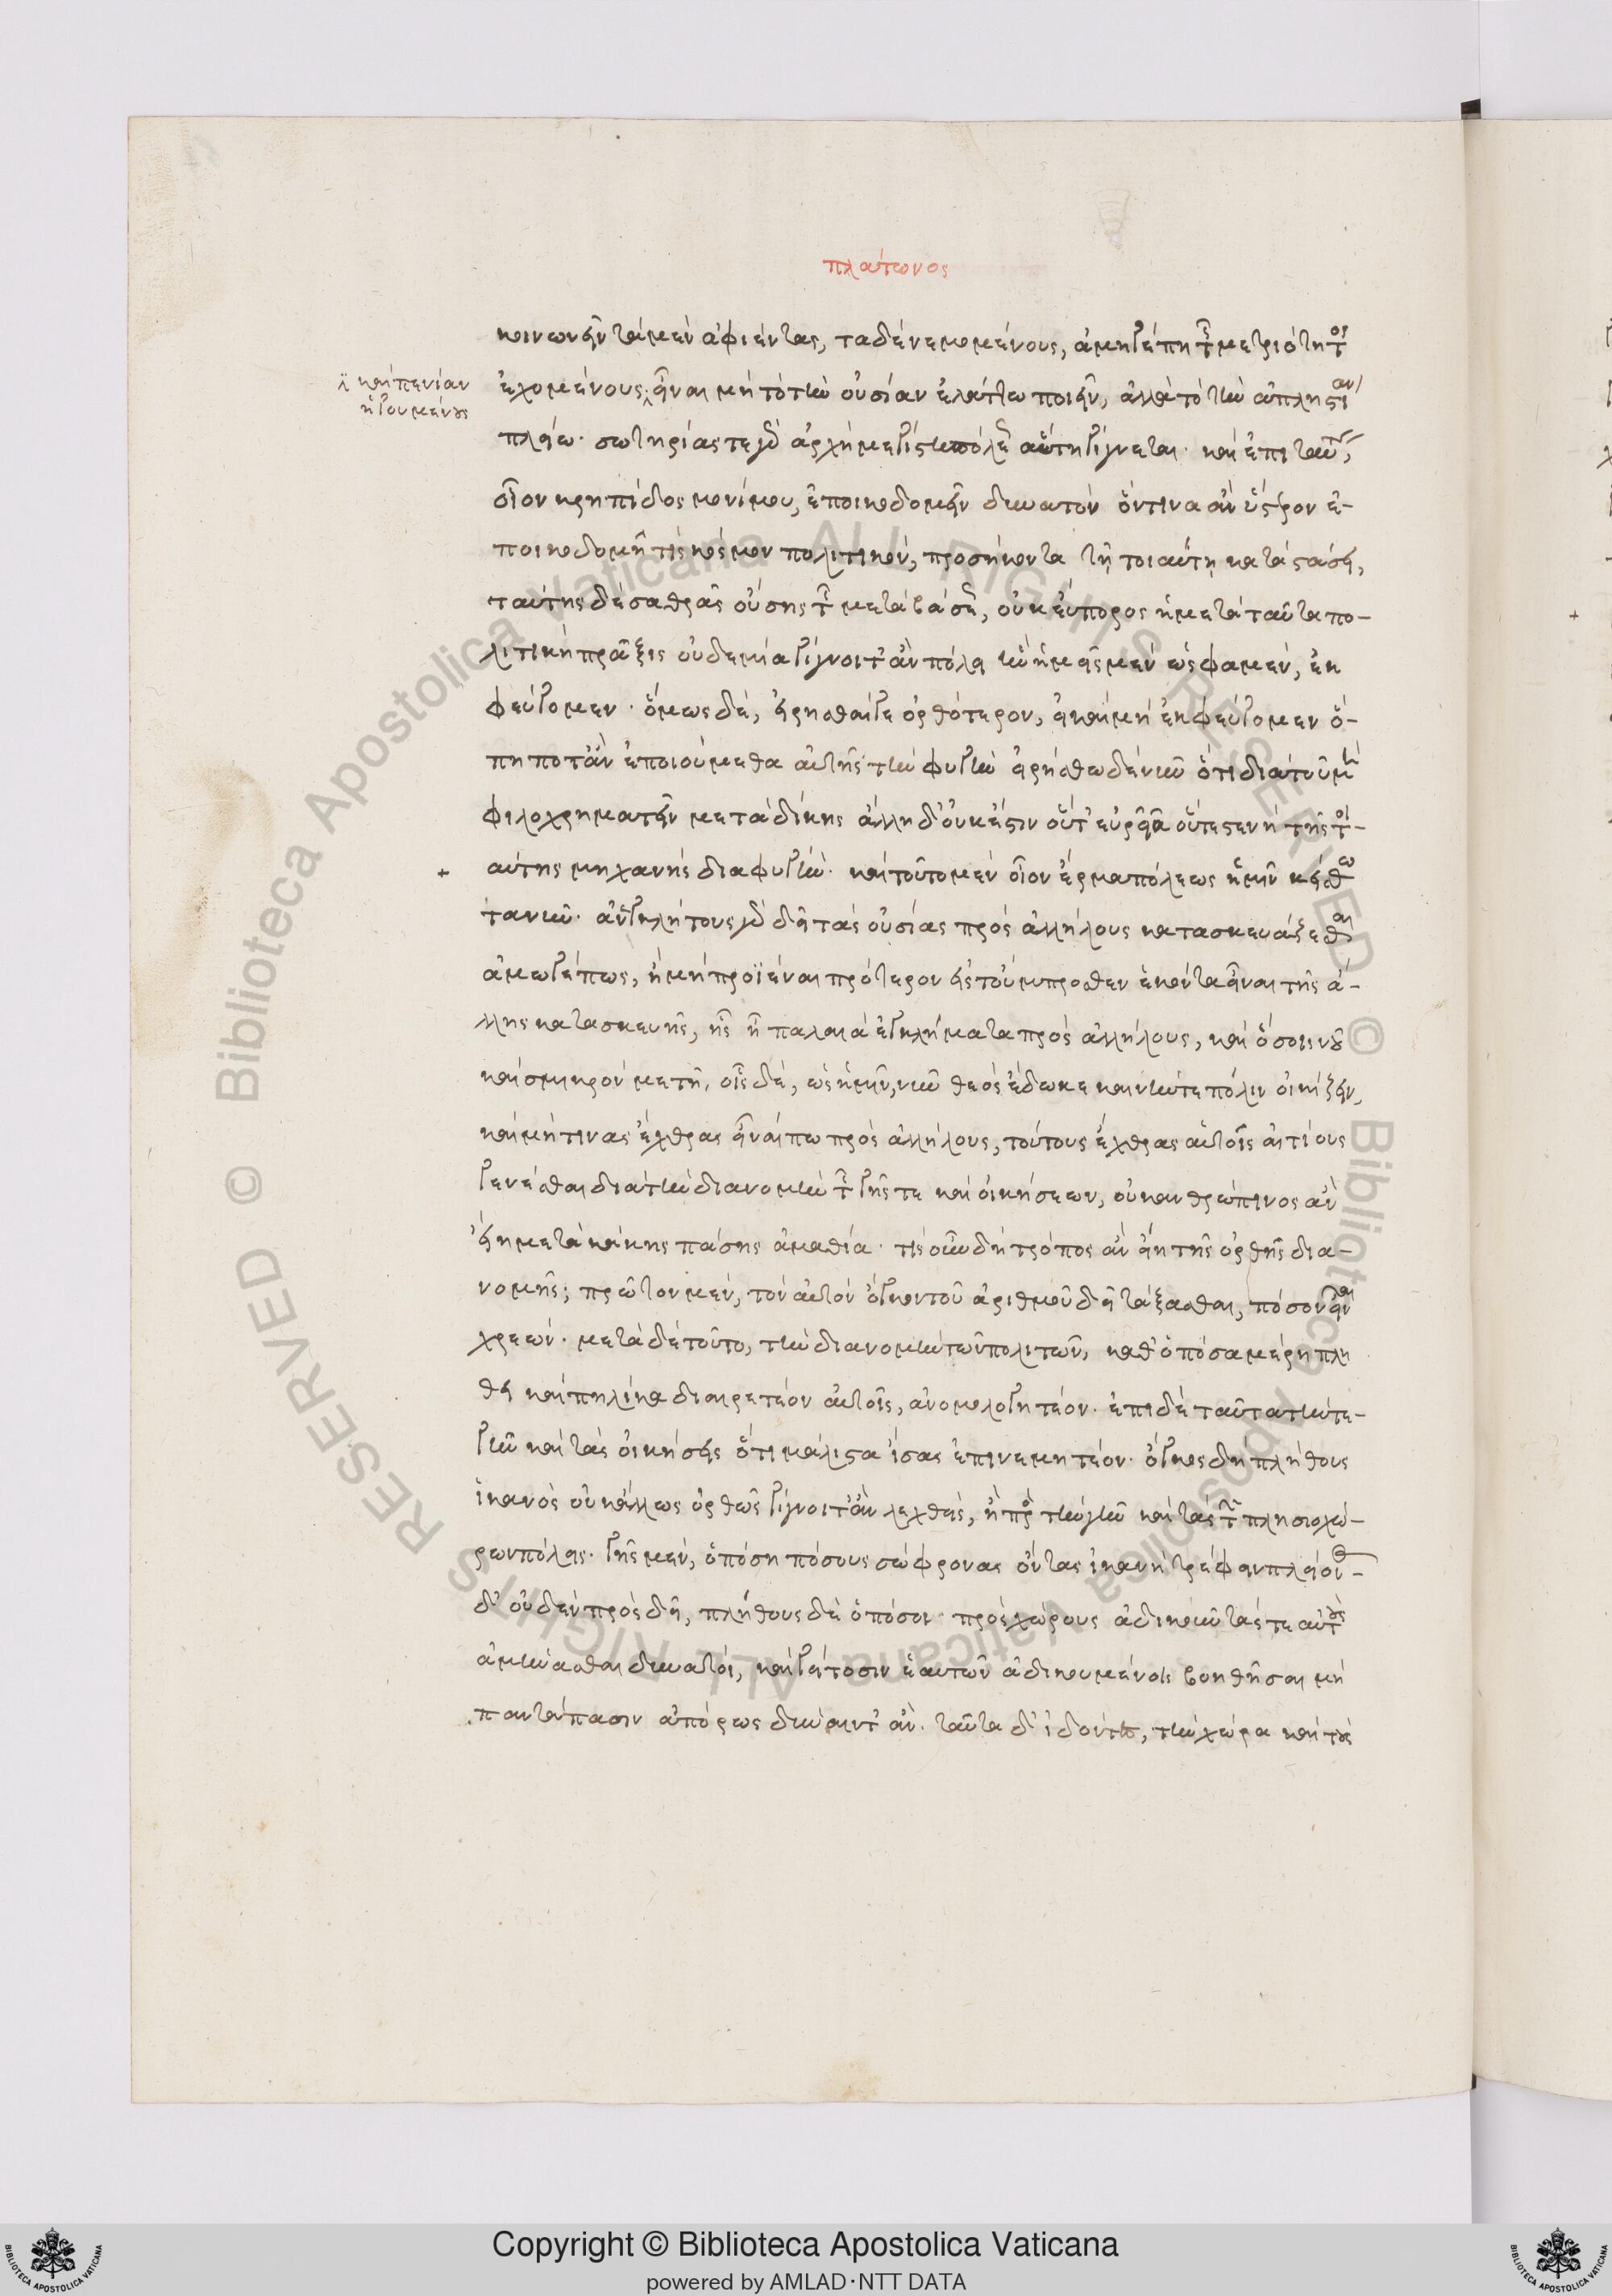 πλάτωνος
κοινωνεῖν τὰ μὲν ἀφιέντας, τὰ δὲ νεμομένους, ἁμηγέπη τῆς μετριότητος
καὶ πενίαν
ἡγουμένους
ἐχομένους εἶναι μὴ τὸ τὴν οὐσίαν ἐλάττω ποιεῖν, ἀλλὰ τὸ τὴν ἀπληστίαν
πλείω· σωτηρίας τε γὰρ ἀρχὴ μεγίστη πόλεως αὕτη γίγνεται· καὶ ἐπὶ ταύτης,
οἷον κρηπῖδος μονίμου, ἐποικοδομεῖν δυνατὸν ὅντινα ἂν ὕστερον ἐ-
ποικοδομῇ τὶς κόσμον πολιτικὸν, προσήκοντα τῇ τοιαύτῃ καταστάσει,
ταύτης δὲ σαθρᾶς οὔσης τῆς μεταβάσεως, οὐκ εὔπορος ἡ μετὰ ταῦτα πο-
λιτικὴ πρᾶξις οὐδεμία γίγνοιτ' ἂν πόλει ἣν ἡμεῖς μὲν ὡς φαμὲν, ἐκ
φεύγομεν· ὅμως δὲ, εἰρῆσθαί γε ὀρθότερον, εἰ καὶ μὴ ἐκφεύγομεν ὅ-
πῃ ποτ' ἂν ἐποιούμεθα αὐτῆς τὴν φυγὴν εἰρήσθω δὲ νῦν ὅτι διὰ τοῦ μὴ
φιλοχρηματεῖν μετὰ δίκης ἄλλη δ' οὐκ ἔστιν οὔτ' εὐρεῖα οὔτε στενὴ τῆς τοι-
αύτης μηχανῆς διαφυγή· καὶ τοῦτο μὲν οἷον ἕρμα πόλεως ἡμῖν κείσθω
τανῦν· ἀνεγκλήτους γὰρ δεῖ τὰς οὐσίας πρὸς ἀλλήλους κατασκευάζεσθαι
ἁμωγέπως, ἢ μὴ προϊέναι πρότερον εἰς τοὔμπροσθεν ἑκόντα εἶναι τῆς ἄ-
λλης κατασκευῆς, οἷς ᾖ παλαιὰ ἐγκλήματα πρὸς ἀλλήλους, καὶ ὅσοις νοῦ
καὶ σμικρὸν μετῇ, οἷς δὲ, ὡς ἡμῖν, νῦν θεὸς ἔδωκε καινήν τε πόλιν οἰκίζειν,
καὶ μή τινας ἔχθρας εἶναί πω πρὸς ἀλλήλους, τούτους ἔχθρας αὐτοῖς αἰτίους
γενέσθαι διὰ τὴν διανομὴν τῆς γῆς τε καὶ οἰκήσεων, οὐκ ἀνθρώπινος ἂν
εἴη μετὰ κάκης πάσης ἀμαθία· τίς οὖν δὴ τρόπος ἂν εἴη τῆς ὀρθῆς δια-
νομῆς; πρῶτον μὲν, τὸν αὐτὸν ὄγκον τοῦ ἀριθμοῦ δεῖ τάξασθαι, πόσον εἶναι
χρεών· μετὰ δὲ τοῦτο, τὴν διανομὴν τῶν πολιτῶν, καθ' ὁπόσα μέρη πλή
θει καὶ πηλίκα διαιρετέον αὐτοῖς, ἀνομολογητέον· ἐπὶ δὲ ταῦτα τήν τε-
γῆν καὶ τὰς οἰκήσεις ὅτι μάλιστα ἴσας ἐπινεμητέον· ὄγκος δὴ πλήθους
ἱκανὸς οὐκ ἄλλως ὀρθῶς γίγνοιτ' ἂν λεχθεὶς, ἢ πρὸς τὴν γῆν καὶ τὰς τῶν πλησιοχώ-
ρων πόλεις· γῆς μὲν, ὁπόση πόσους σώφρονας ὄντας ἱκανὴ τρέφειν πλείονος-
δ' οὐδὲν προσδεῖ, πλήθους δὲ ὁπόσοι πρὸς χώρους ἀδικοῦντάς τε αὐτοὺς
ἀμύνασθαι δυνατοὶ, καὶ γείτοσιν ἑαυτῶν ἀδικουμένοις βοηθῆσαι μὴ
παντάπασιν ἀπόρως δύναιντ' ἄν. ταῦτα δ' ἰδόντες, τὴν χώρα καὶ τοὺς